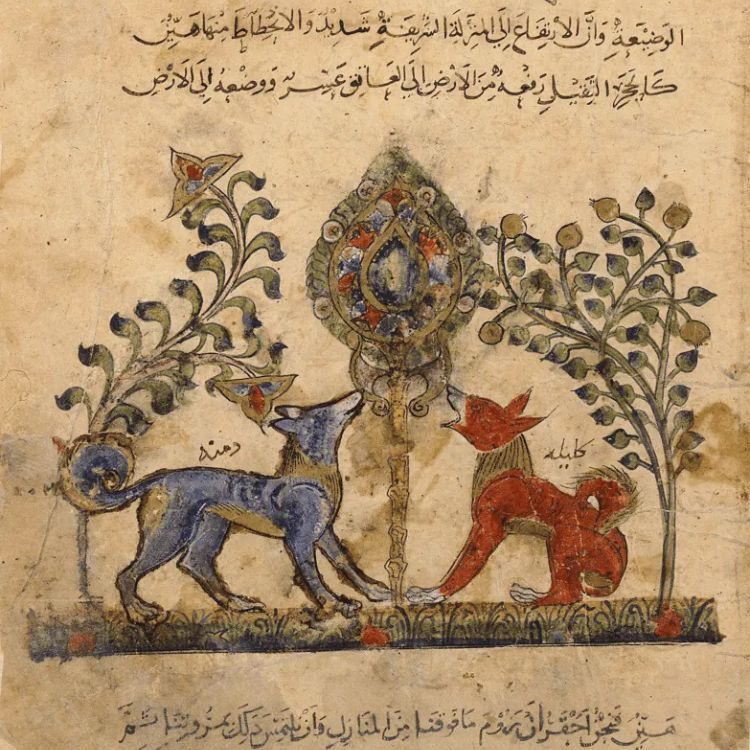 الوضيعة وان الارتفاع الى المنزلة الشريفة شديد والانحطاط منها هين
كالحجر الثقيل رفعه من الارض الى العاتق عسر ووضعه الى الارض
كليله
دمنه
هين فنحن احق ان نروم ما فوقنا من المنازل وان نلتمس ذلك بمروتنا ثم